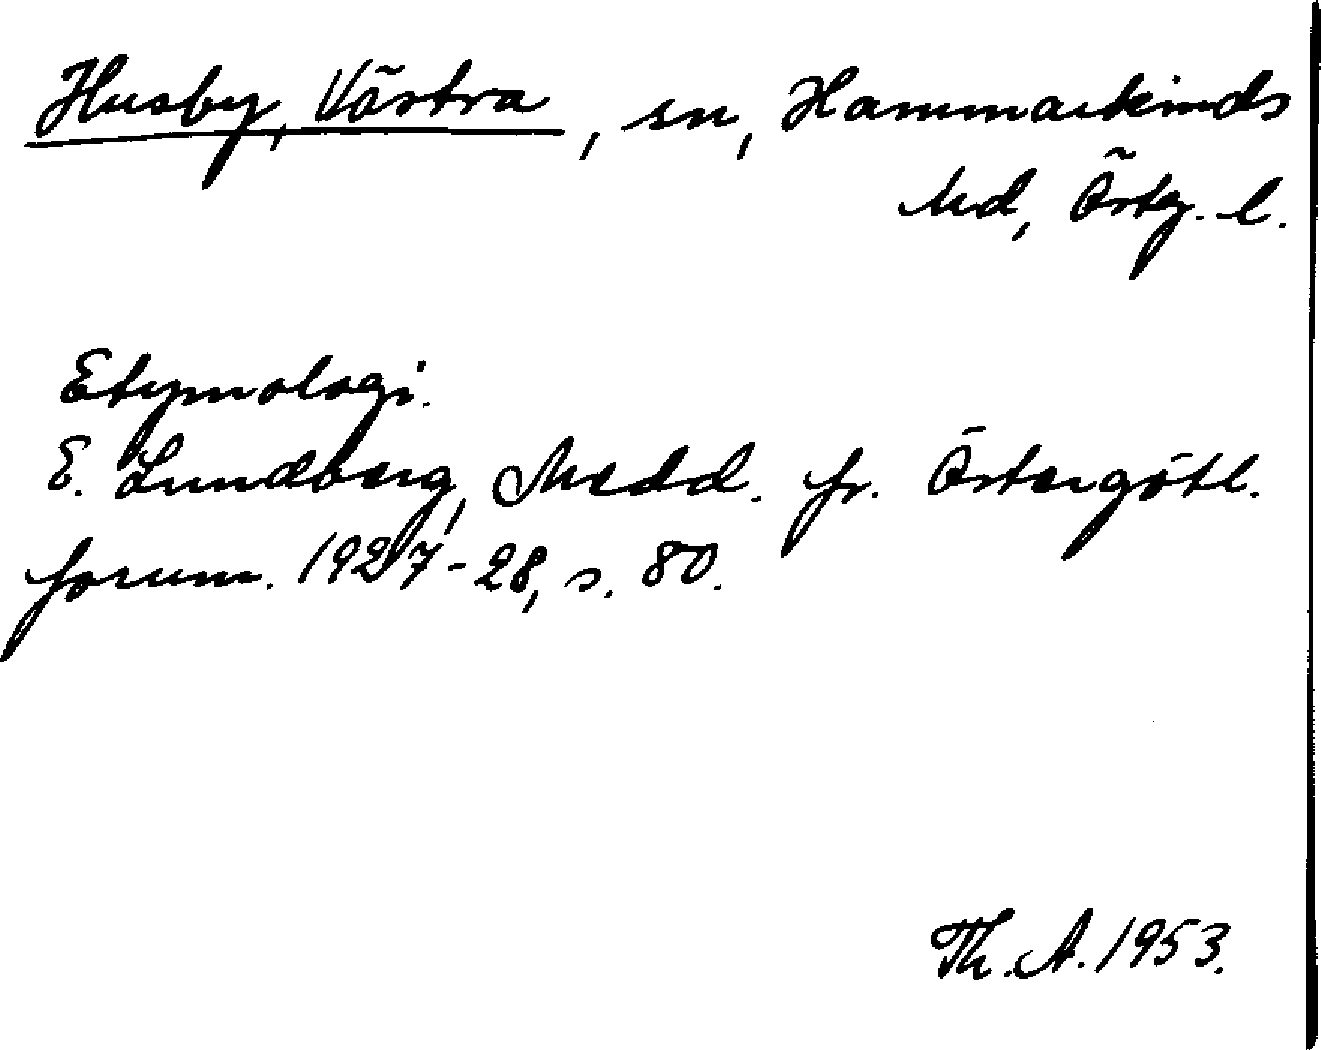 Husby, Västra, sn, Hammarkinds
hd, Östg. l.
Etymologi.
E. Lundberg, Medd. fr. Östergötl.
fornm. 1927-28, s. 80.
Th. A. 1953.